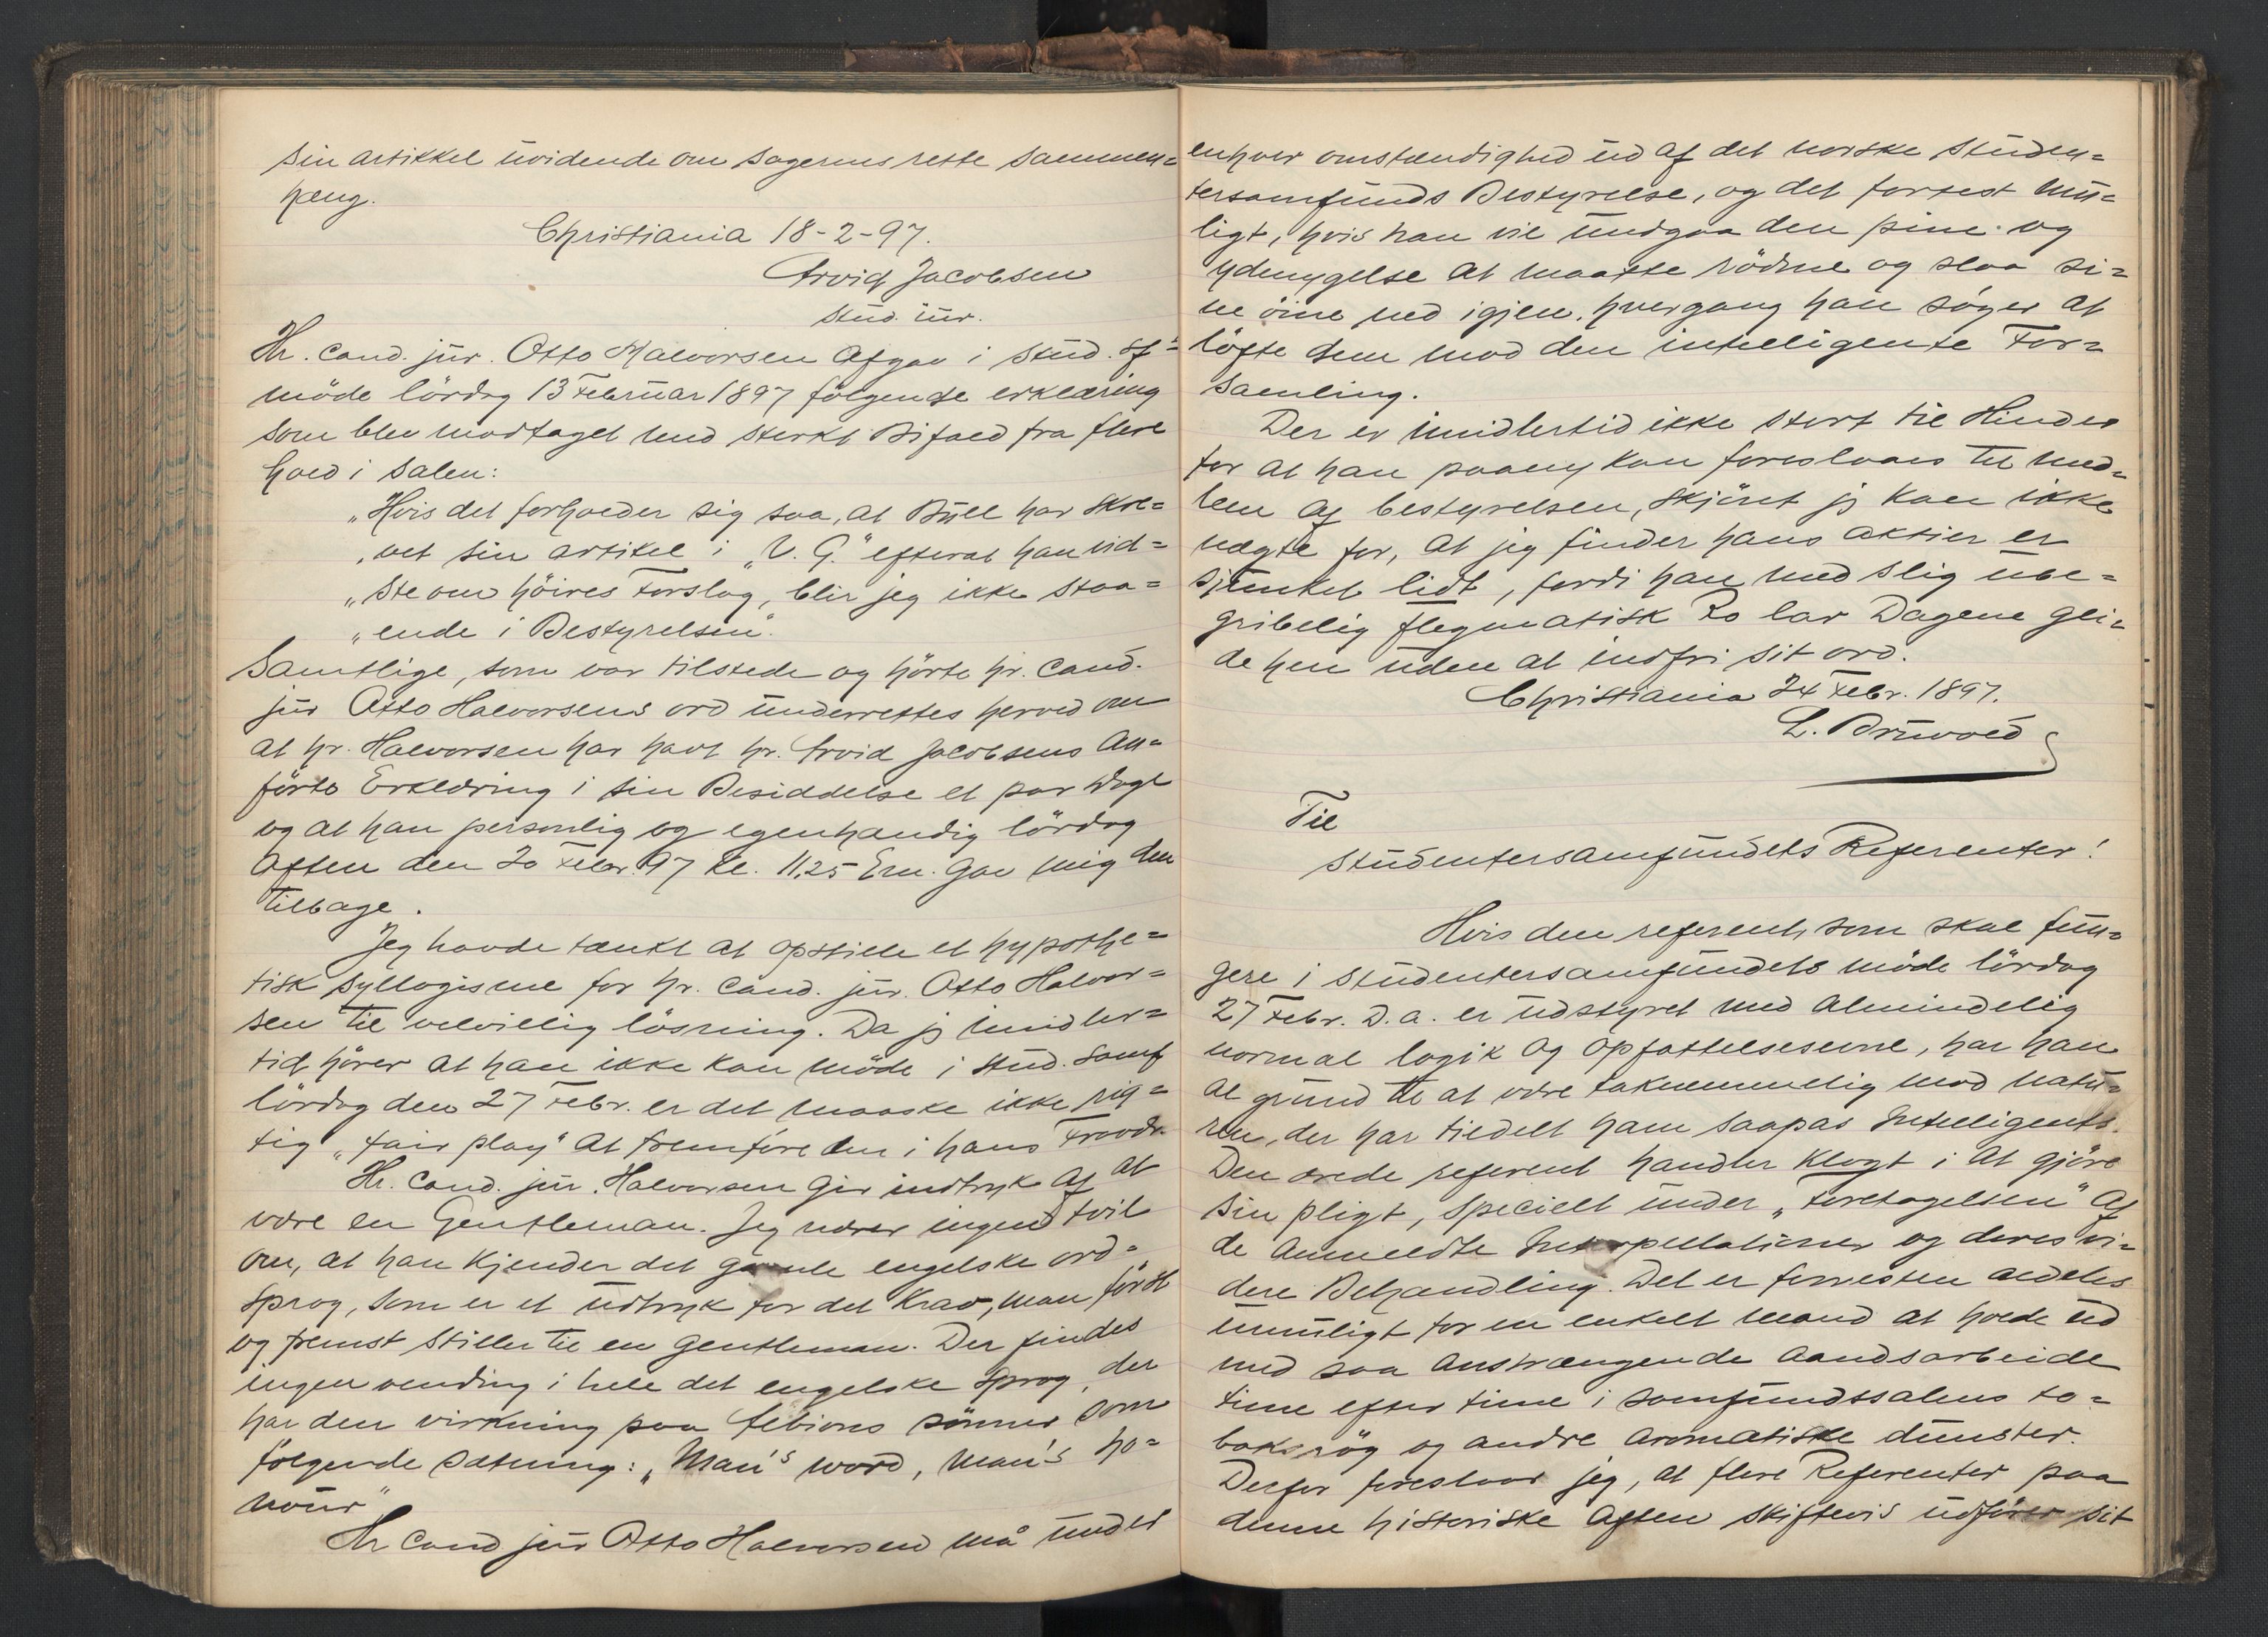 sin artikkel uvidende om sagernes rette sammen=
hæng.
Christiania 18-2-97.
Arvid Jacobsen
stud. jur.
Hr. cand. jur. Otto Halvorsen afgav i stud. sf=
møde lördag 13 Februar 1897 fölgende erklæring
som blev modtaget med sterkt Bifald fra flere
hold i salen:
„Hvis det forholder sig saa, at Büll har skre=
„vet sin artikel i „V. G." efterat han vid=
„ste om höires Forslag, blir jeg ikke staa=
„ende i Bestyrelsen".
Samtlige, som var tilstede og hörte hr. cand.
jur Otto Halvorsens ord underrettes herved om
at hr. Halvorsen har havt hr. Arvid Jacobsens an=
förte Erklæring i sin Besiddelse et par dage
og at han personlig og egenhændig lördag
aften den 20 Febr. 97 kl. 11.25 Em. gav mig den
tilbage.
Jeg havde tænkt at opstille et hypothe=
tisk syllogisme for hr. cand. jur. Otto Halvor=
sen til velvillig lösning. Da jeg imidler=
tid hörer at han ikke kan möde i stud. samf
lördag den 27 Febr. er det maaske ikke rig=
tig „fair play" at fremföre den i hans Fravær.
Hr. cand. jur. Halvorsen gir indtryk af at
være en Gentleman. Jeg nærer ingen tvil
om, at han kjender det gamle engelske ord=
sprog, som er et udtryk for det Krav, man först
og fremst stiller til en gentleman. Der findes
ingen vending i hele det engelske sprog, der
har den virkning paa Albions sönner som
fölgende sætning: „Man's word, man's ho=
nour"
Hr cand jur Otto Halvorsen må under
enhver omstændighed ud af det norske studen=
tersamfunds Bestyrelse, og det fortest mu=
ligt, hvis han vil undgaa den pine og
ydmygelse at maatte rödme og slaa si=
ne öine ned igjen, hvergang han söger at
löfte dem mod den intelligente For=
samling.
Der er imidlertid ikke stort til Hinder
for at han paany kan foreslaaes til med=
lem af bestyrelsen, skjönt jeg kan ikke
nægte for, at jeg finder hans aktier er
sjunket lidt, fordi han med slig ube=
gribelig flegmatisk Ro lar Dagene gli=
de hen uden at indfri sit ord.
Christiania 24 Febr. 1897.
L. Bruvold
Til
Studentersamfundets Referenter!
Hvis den referent, som skal fun=
gere i studentersamfundets möde lördag
27 Febr. d.a. er udstyret med almindelig
normal logik og opfattelsesevne, har han
al grund til at være taknemmelig mod natu=
ren, der har tildelt ham saapas Intelligents.
Den ærede referent handler klogt i at gjöre
sin pligt, specielt under „Foretagelsen" af
de anmeldte Interpellationer og deres vi=
dere Behandling. Det er forresten aldeles
umuligt for en enkelt mand at holde ud
med saa anstrængende aandsarbeide
time efter time i samfundssalens to=
baksrög og andre aromatiske dunster.
Derfor foreslaar jeg, at flere Referenter paa
denne historiske aften skiftevis udförer sit